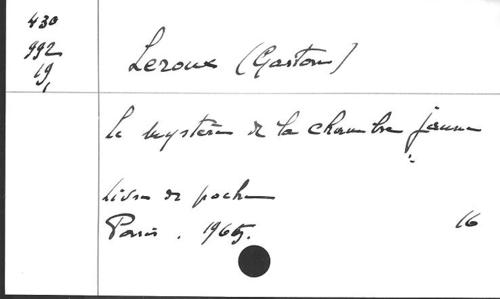 430
992
19,
Leroux (Gaston)
Le mystère de la chambre jaune
Livre de poche
Paris. 1965.
16